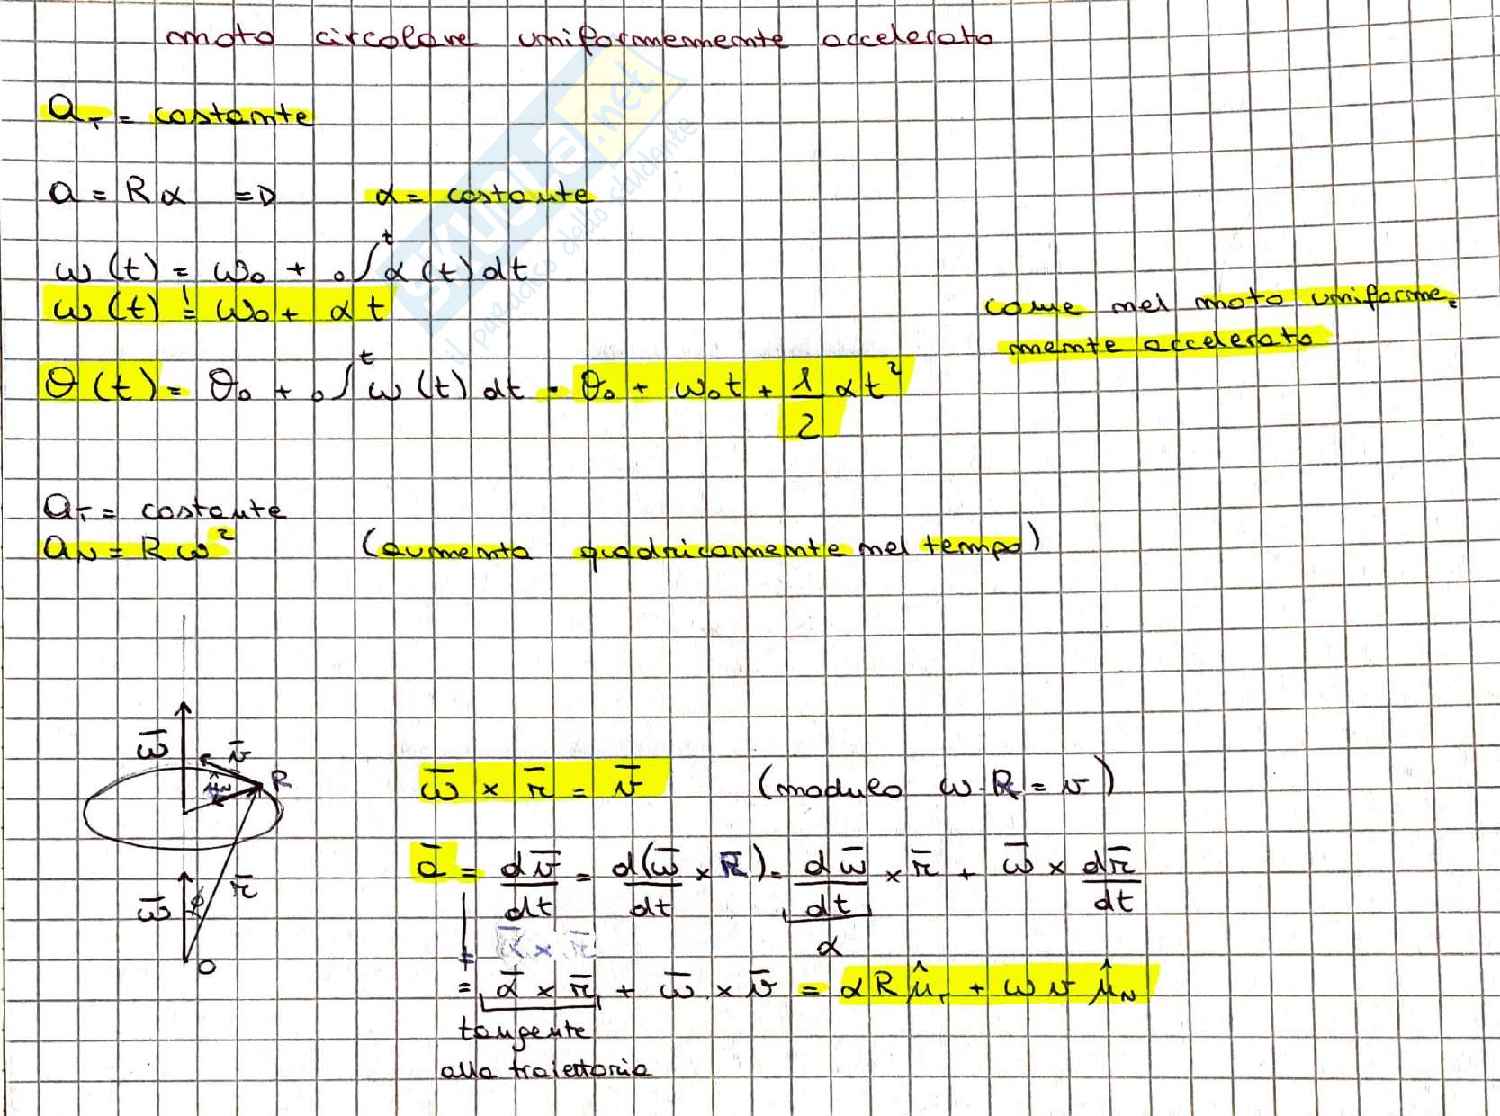 moto circolare uniformemente accelerato
SKUOLA.net
il paradiso dello studente
a_T = costante
a = Rα => α = costante
ω(t) = ω₀ + ₀∫ᵗ α(t) dt
ω(t) = ω₀ + αt
come nel moto uniforme-
mente accelerato
θ(t) = θ₀ + ₀∫ᵗ ω(t) dt = θ₀ + ω₀t + 1/2 αt²
a_T = costante
a_N = Rω² (aumenta quadricamente nel tempo)
ω̄ v̄ û_N R
ω̄ × r̄ = v̄ (modulo ω R = v)
ā = dv̄/dt = d(ω̄ × r̄)/dt = dω̄/dt × r̄ + ω̄ × dr̄/dt
α
ω̄ φ r̄ O
ᾱ × r̄
= ᾱ × r̄ + ω̄ × v̄ = αR û_T + ωv û_N
tangente
alla traiettoria